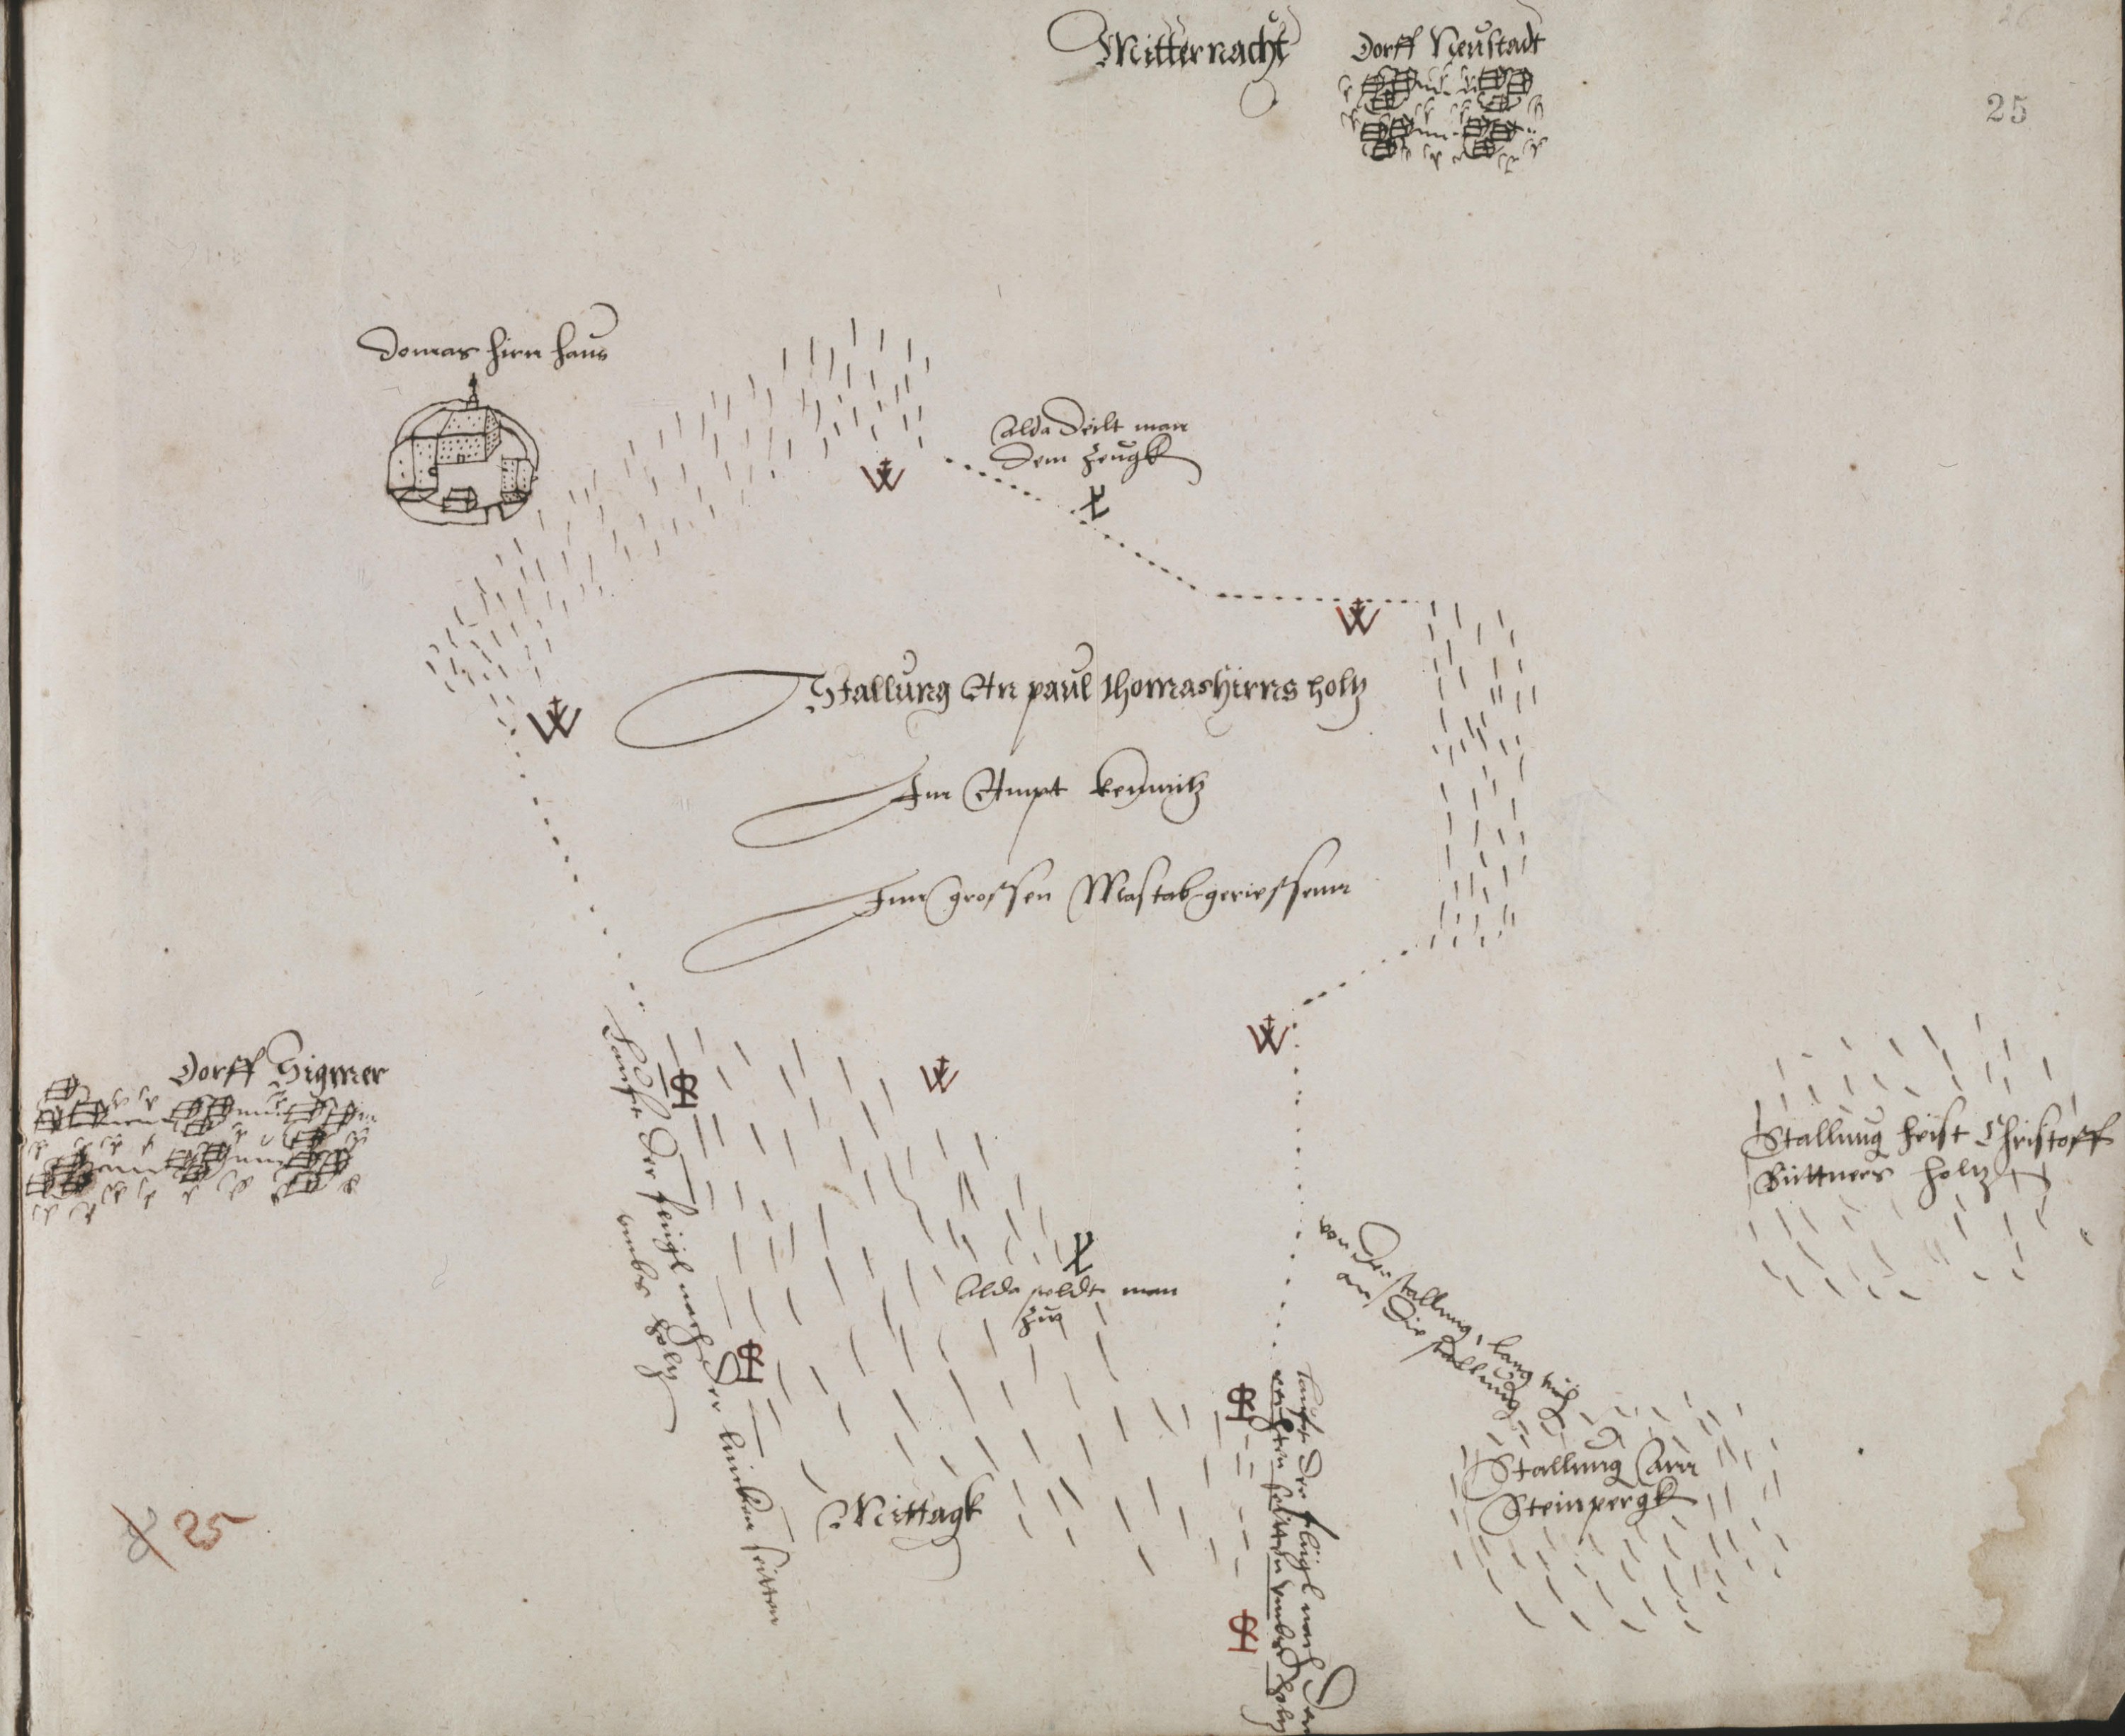 Mitternacht
Dorff Neustadt
25
Domas hirn haus
Alda deilt man
dem Zeugk
Stallung An paul thomashirns holtz
Im Ampt Kemnitz
Im grossen Mastab geriessenn
Dorff Sigmer
Lauft der fligl nach der lincken seitten
umbs holtz
Alda steldt man
zu
Mittagk
von der stallung, lang
an die stallung
Stallung heist Christoff
Büttners holtz
Stallung Am
Steinpergk
lauft der fligl nach der
rechten seitten umbs holtz
25